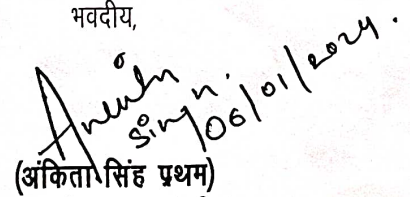 भवदीय,
Ankita
Singh.
06/01/2024.
(अंकिता सिंह प्रथम)